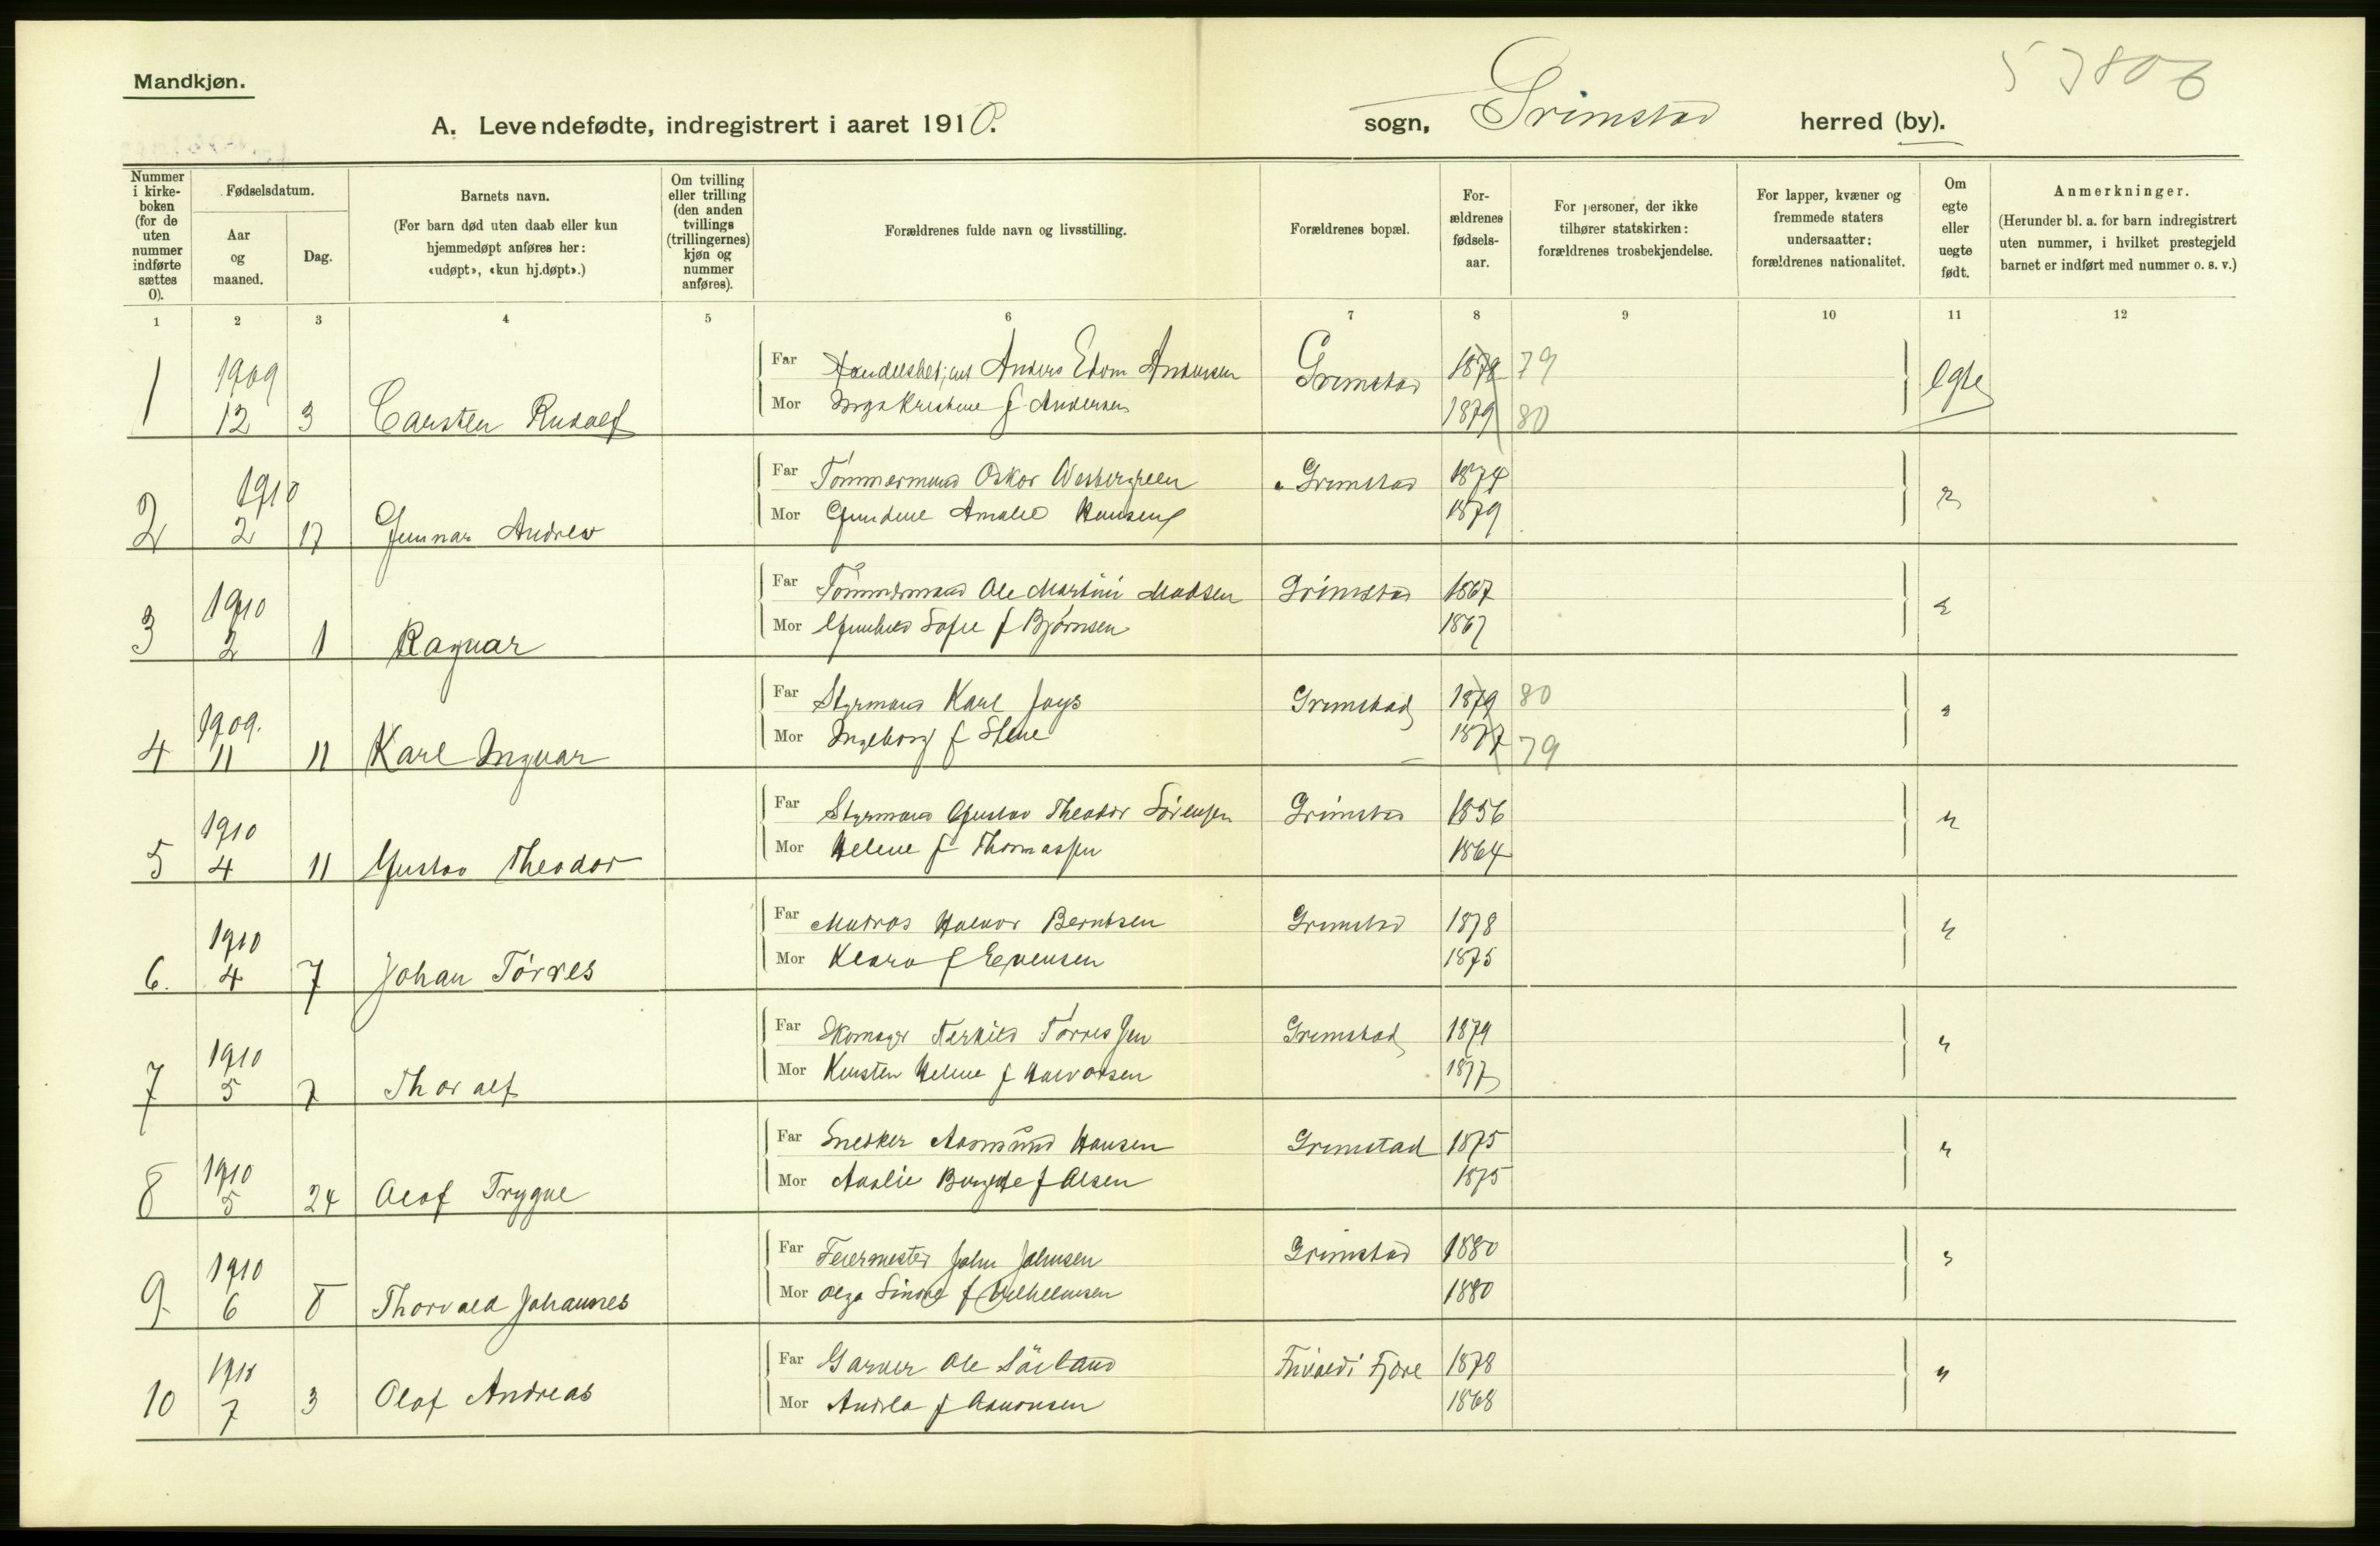 Mandkjøn.
53806
A. Levendefødte, indregistrert i aaret 1910. sogn, Grimstad herred (by).
Nummer i kirke-boken (for de uten nummer indførte sættes 0).
Fødselsdatum.
Aar og maaned.
Dag.
Barnets navn.
(For barn død uten daab eller kun hjemmedøpt anføres her: «udøpt», «kun hj.døpt».)
Om tvilling eller trilling (den anden tvillings (trillingernes) kjøn og nummer anføres).
Forældrenes fulde navn og livsstilling.
Forældrenes bopæl.
For-ældrenes fødsels-aar.
For personer, der ikke tilhører statskirken: forældrenes trosbekjendelse.
For lapper, kvæner og fremmede staters undersaatter: forældrenes nationalitet.
Om egte eller uegte født.
Anmerkninger.
(Herunder bl. a. for barn indregistrert uten nummer, i hvilket prestegjeld barnet er indført med nummer o. s. v.)
1 2 3 4 5 6 7 8 9 10 11 12
1 1909 12 3 Carsten Rudolf
Far Handelsbetjent Anders Edom Andersen Grimstad 1878 79 egte
Mor Inga Kristine f. Andersen 1879 80
2 1910 2 17 Gunnar Andrew
Far Tømmermand Oskar Westergreen Grimstad 1874 "
Mor Gundine Amalie Hansen 1879
3 1910 2 1 Ragnar
Far Tømmermand Ole Martin Madsen Grimstad 1867 "
Mor Gunhild Sofie f Bjørnsen 1867
4 1909. 11 11 Karl Ingvar
Far Styrmand Karl Joys Grimstad 1879 80 "
Mor Ingeborg f Stene 1877 79
5 1910 4 11 Gustav Theodor
Far Styrmand Gustav Theodor Sørensen Grimstad 1856 "
Mor Helene f Thomassen 1864
6. 1910 4 7 Johan Tørres
Far Matros Halvor Berntsen Grimstad 1878 "
Mor Klara f Evensen 1875
7 1910 5 7 Thoralf
Far Skomager Terkild Tørressen Grimstad 1879 "
Mor Kirsten Helene f Halvorsen 1877
8 1910 5 24 Olaf Trygve
Far Snedker Aasmund Hansen Grimstad 1875 "
Mor Aaslie Birgitte f Olsen 1875
9 1910 6 8 Thorvald Johannes
Far Feiermester John Johnsen Grimstad 1880 "
Mor Olga f Wilhelmsen 1880
10 1910 7 3 Olaf Andreas
Far Garver Ole Sörland Frivold i Fjære 1878 "
Mor Andrea f Aanonsen 1868